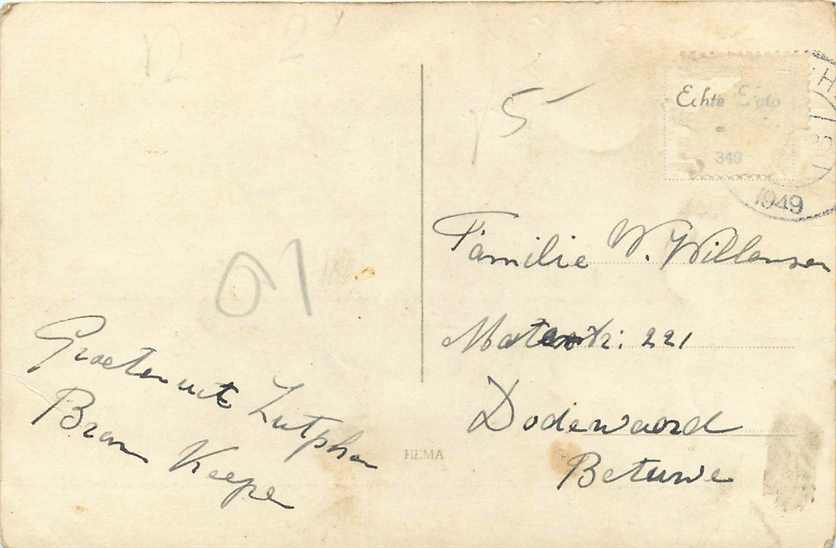 12 2
5
Echte Foto
349
1949
Familie W. Willemsen
221
Dodewaard
Betuwe
01
Groeten uit Zutphen
Bram
HEMA